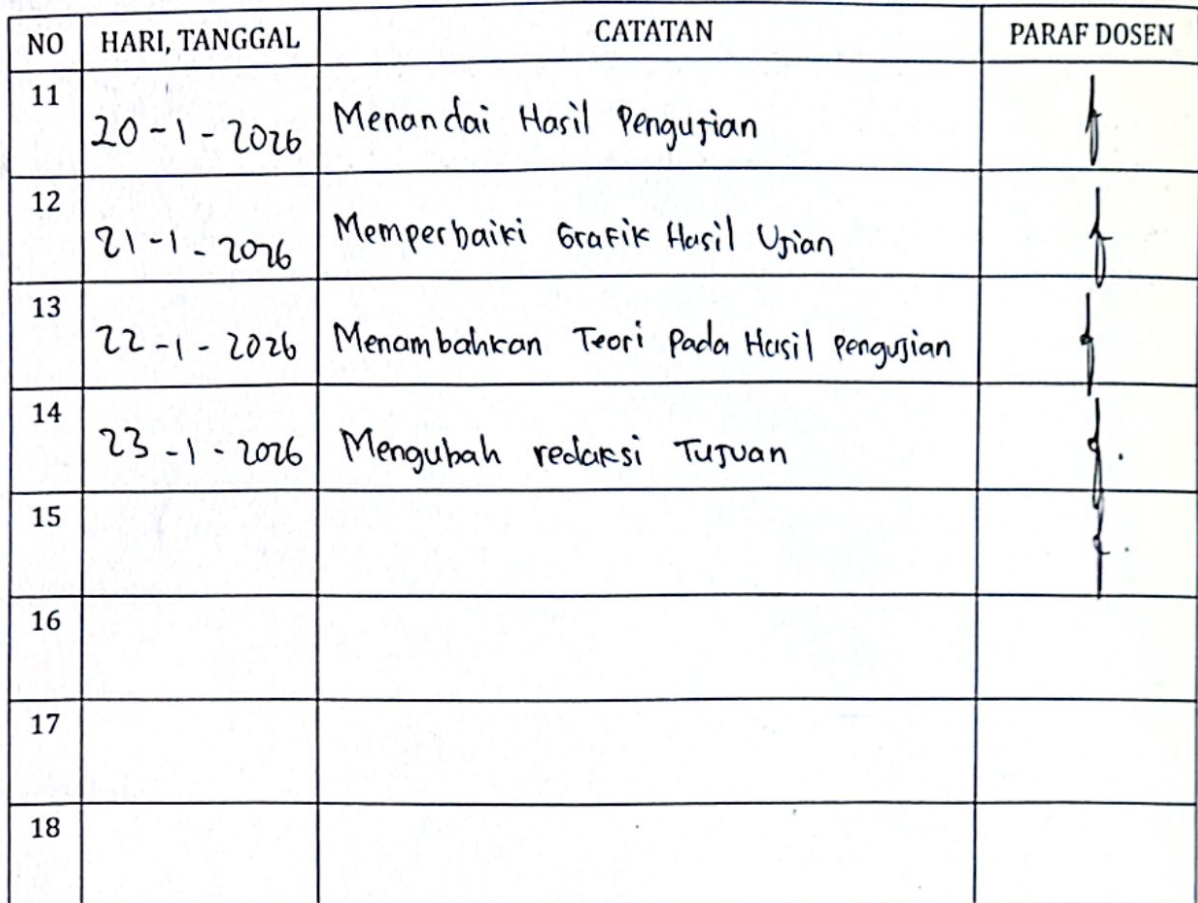 NO HARI, TANGGAL CATATAN PARAF DOSEN
11 20-1-2026 Menandai Hasil Pengujian
12 21-1-2026 Memperbaiki Grafik Hasil Ujian
13 22-1-2026 Menambahkan Teori Pada Hasil Pengujian
14 23-1-2026 Mengubah redaksi Tujuan
15
16
17
18